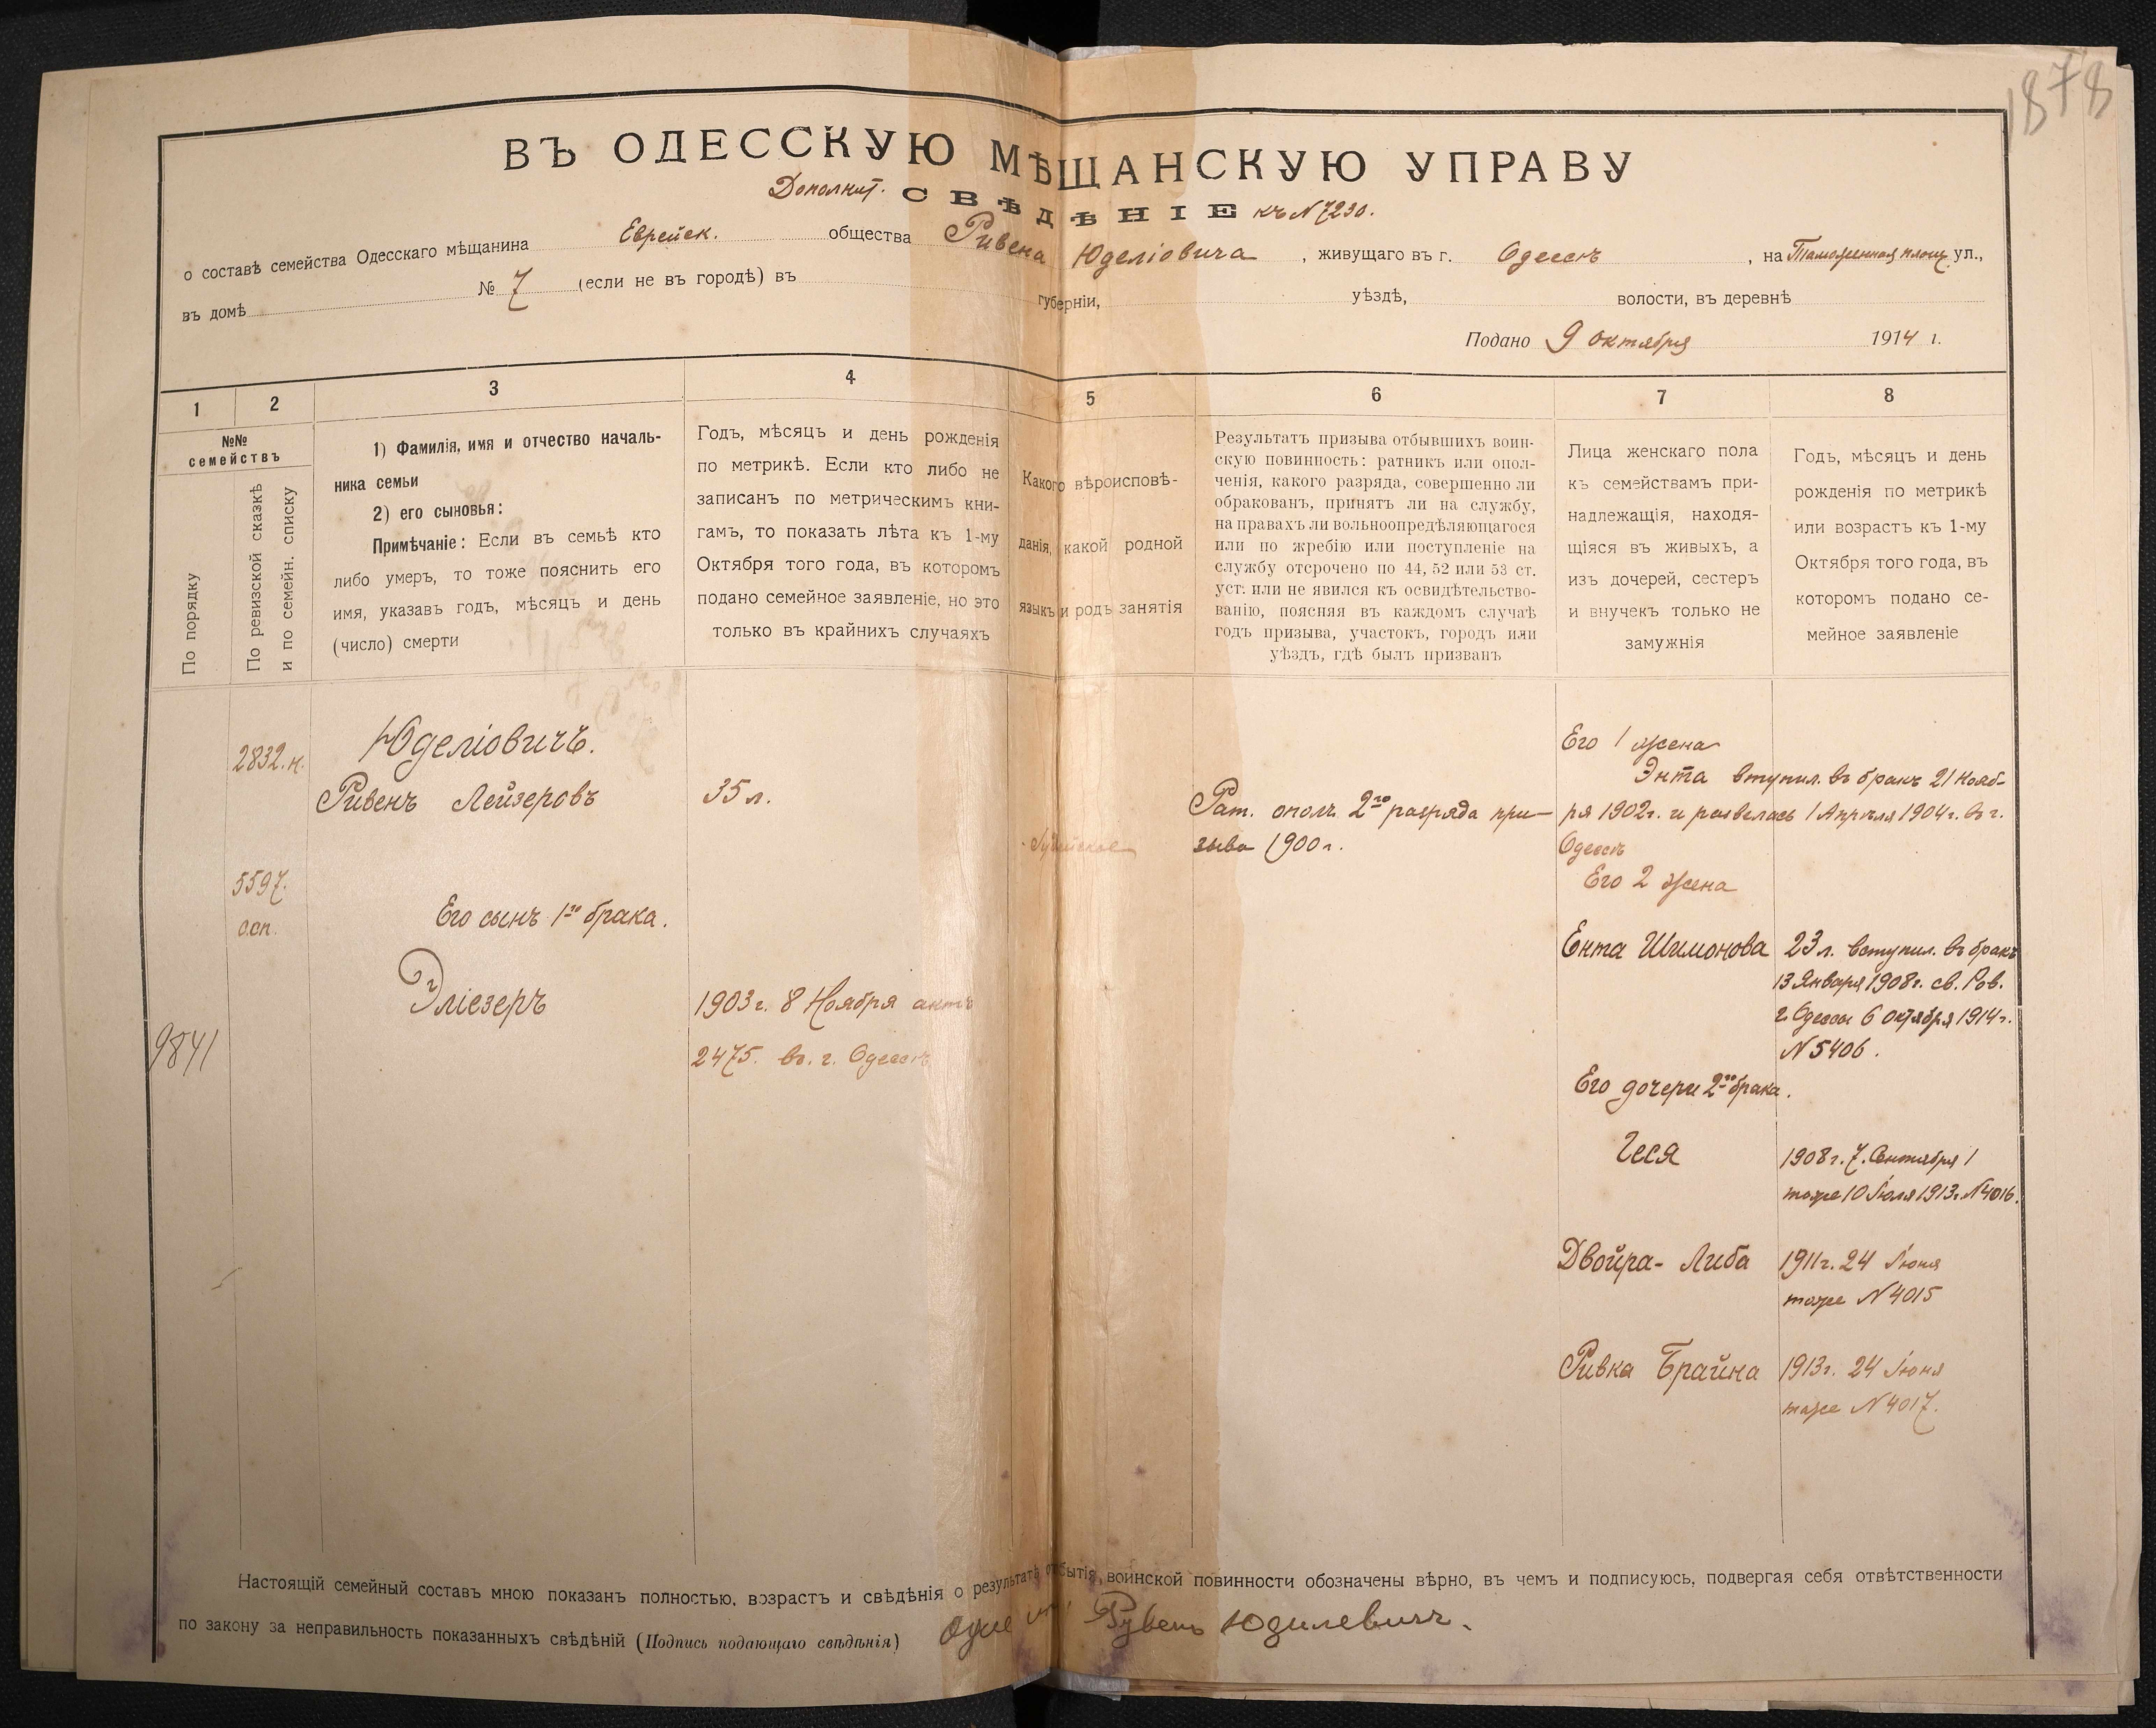 1878
ВЪ ОДЕССКУЮ МѢЩАНСКУЮ УПРАВУ
Дополнит. СВѢДѢНІЕ къ N 7230.
о составѣ семейства Одесскаго мѣщанина Еврейск. общества Ривена Юделіовича, живущаго въ г. Одессѣ, на Таможенная площ. ул.,
въ домѣ № 7 (если не въ городѣ) въ губерніи, уѣздѣ, волости, въ деревнѣ
Подано 9 октября 1914 г.
1 2 3 4 5 6 7 8
№№
семействъ
По порядку
По ревизской сказкѣ
и по семейн. списку
1) Фамилія, имя и отчество началь-
ника семьи
2) его сыновья:
Примѣчаніе: Если въ семьѣ кто
либо умеръ, то тоже пояснить его
имя, указавъ годъ, мѣсяцъ и день
(число) смерти
Годъ, мѣсяцъ и день рожденія
по метрикѣ. Если кто либо не
записанъ по метрическимъ кни-
гамъ, то показать лѣта къ 1-му
Октября того года, въ которомъ
подано семейное заявленіе, но это
только въ крайнихъ случаяхъ
Какого вѣроисповѣ-
данія, какой родной
языкъ и родъ занятія
Результатъ призыва отбывшихъ воин-
скую повинность: ратникъ или опол-
ченія, какого разряда, совершенно ли
обракованъ, принятъ ли на службу,
на правахъ ли вольноопредѣляющагося
или по жребію или поступленіе на
службу отсрочено по 44, 52 или 53 ст.
уст. или не явился къ освидѣтельство-
ванію, поясняя въ каждомъ случаѣ
годъ призыва, участокъ, городъ или
уѣздъ, гдѣ былъ призванъ
Лица женскаго пола
къ семействамъ при-
надлежащія, находя-
щіяся въ живыхъ, а
изъ дочерей, сестеръ
и внучекъ только не
замужнія
Годъ, мѣсяцъ и день
рожденія по метрикѣ
или возрастъ къ 1-му
Октября того года, въ
которомъ подано се-
мейное заявленіе
9841
2832. н.
5597.
о.сп.
Юделіовичъ.
Ривенъ Лейзеровъ
Его сынъ 1го брака.
Эліезеръ
35 л.
1903 г. 8 Ноября актъ
2475. въ. г. Одессѣ
Іудейское
Рат. ополч. 2го разряда при-
зыва 1900 г.
Его 1 жена
Энта вступил. въ бракъ 21 Нояб-
ря 1902 г. и развелась 1 Апрѣля 1904 г. въ г.
Одессѣ
Его 2 жена
Ента Шимонова
23 л. вступил. въ бракъ
13 Января 1908 г. св. Рав.
г. Одессы 6 октября 1914 г.
N 5406.
Его дочери 2го брака.
Геся
1908 г. 7. Сентября 1
тоже 10 Іюля 1913 г. N 4016.
Двойра- Либа
1911 г. 24 Іюня
тоже N 4015
Ривка Брайна
1913 г. 24 Іюня
тоже N 4017.
Настоящій семейный составъ мною показанъ полностью, возрастъ и свѣдѣнія о результатѣ отбытія воинской повинности обозначены вѣрно, въ чемъ и подписуюсь, подвергая себя отвѣтственности
по закону за неправильность показанныхъ свѣдѣній (Подпись подающаго свѣдѣнія) Рувенъ Юдилевичъ.